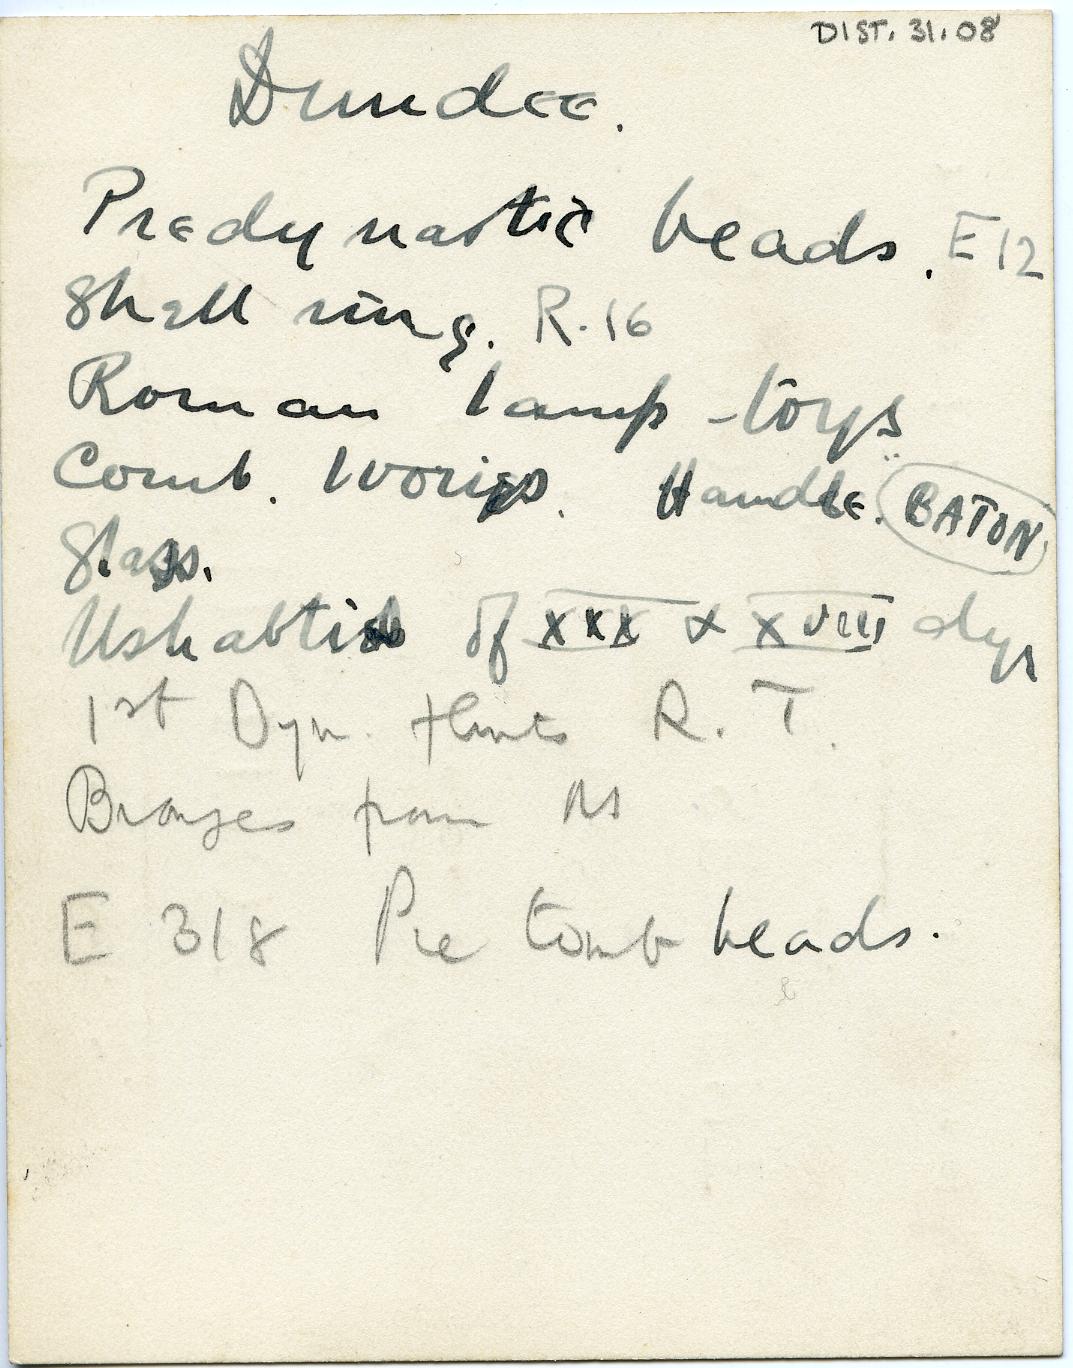 DIST. 31.08
Dundee.
Predynastic beads. E 12
Shell ring. R. 16
Roman lamp - toys
Comb. Ivories. Handle. BATON
Glass.
Ushabtis of XXX & XVIII dyn
1st Dyn. flints R. T.
Bronzes from
E 318 Pre tomb beads.